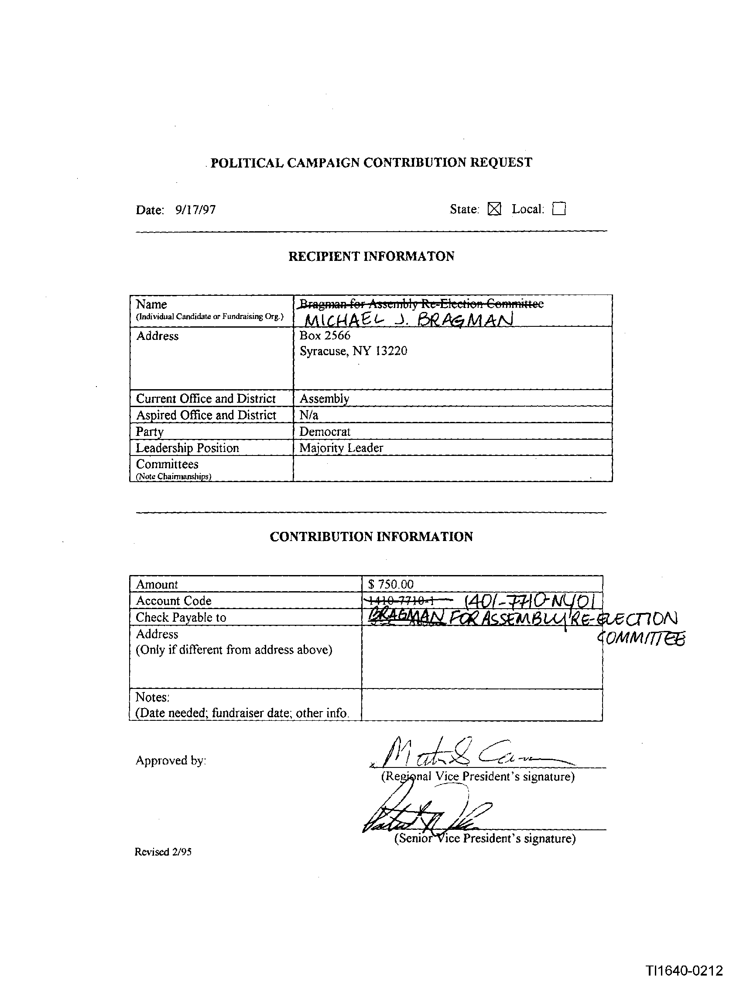 POLITICAL CAMPAIGN CONTRIBUTION REQUEST
Date: 9/17/97 State: ☒ Local: ☐
RECIPIENT INFORMATON
Name Bragman for Assembly Re-Election Committee
(Individual Candidate or Fundraising Org.) MICHAEL J. BRAGMAN
Address Box 2566
Syracuse, NY 13220
Current Office and District Assembly
Aspired Office and District N/a
Party Democrat
Leadership Position Majority Leader
Committees
(Note Chairmanships)
CONTRIBUTION INFORMATION
Amount $ 750.00
Account Code 1410-7710-1 1401-7710-NY01
Check Payable to BRAGMAN FOR ASSEMBLY RE-ELECTION
COMMITTEE
Address
(Only if different from address above)
Notes:
(Date needed; fundraiser date; other info.
Approved by:
(Regional Vice President's signature)
(Senior Vice President's signature)
Revised 2/95
TI1640-0212